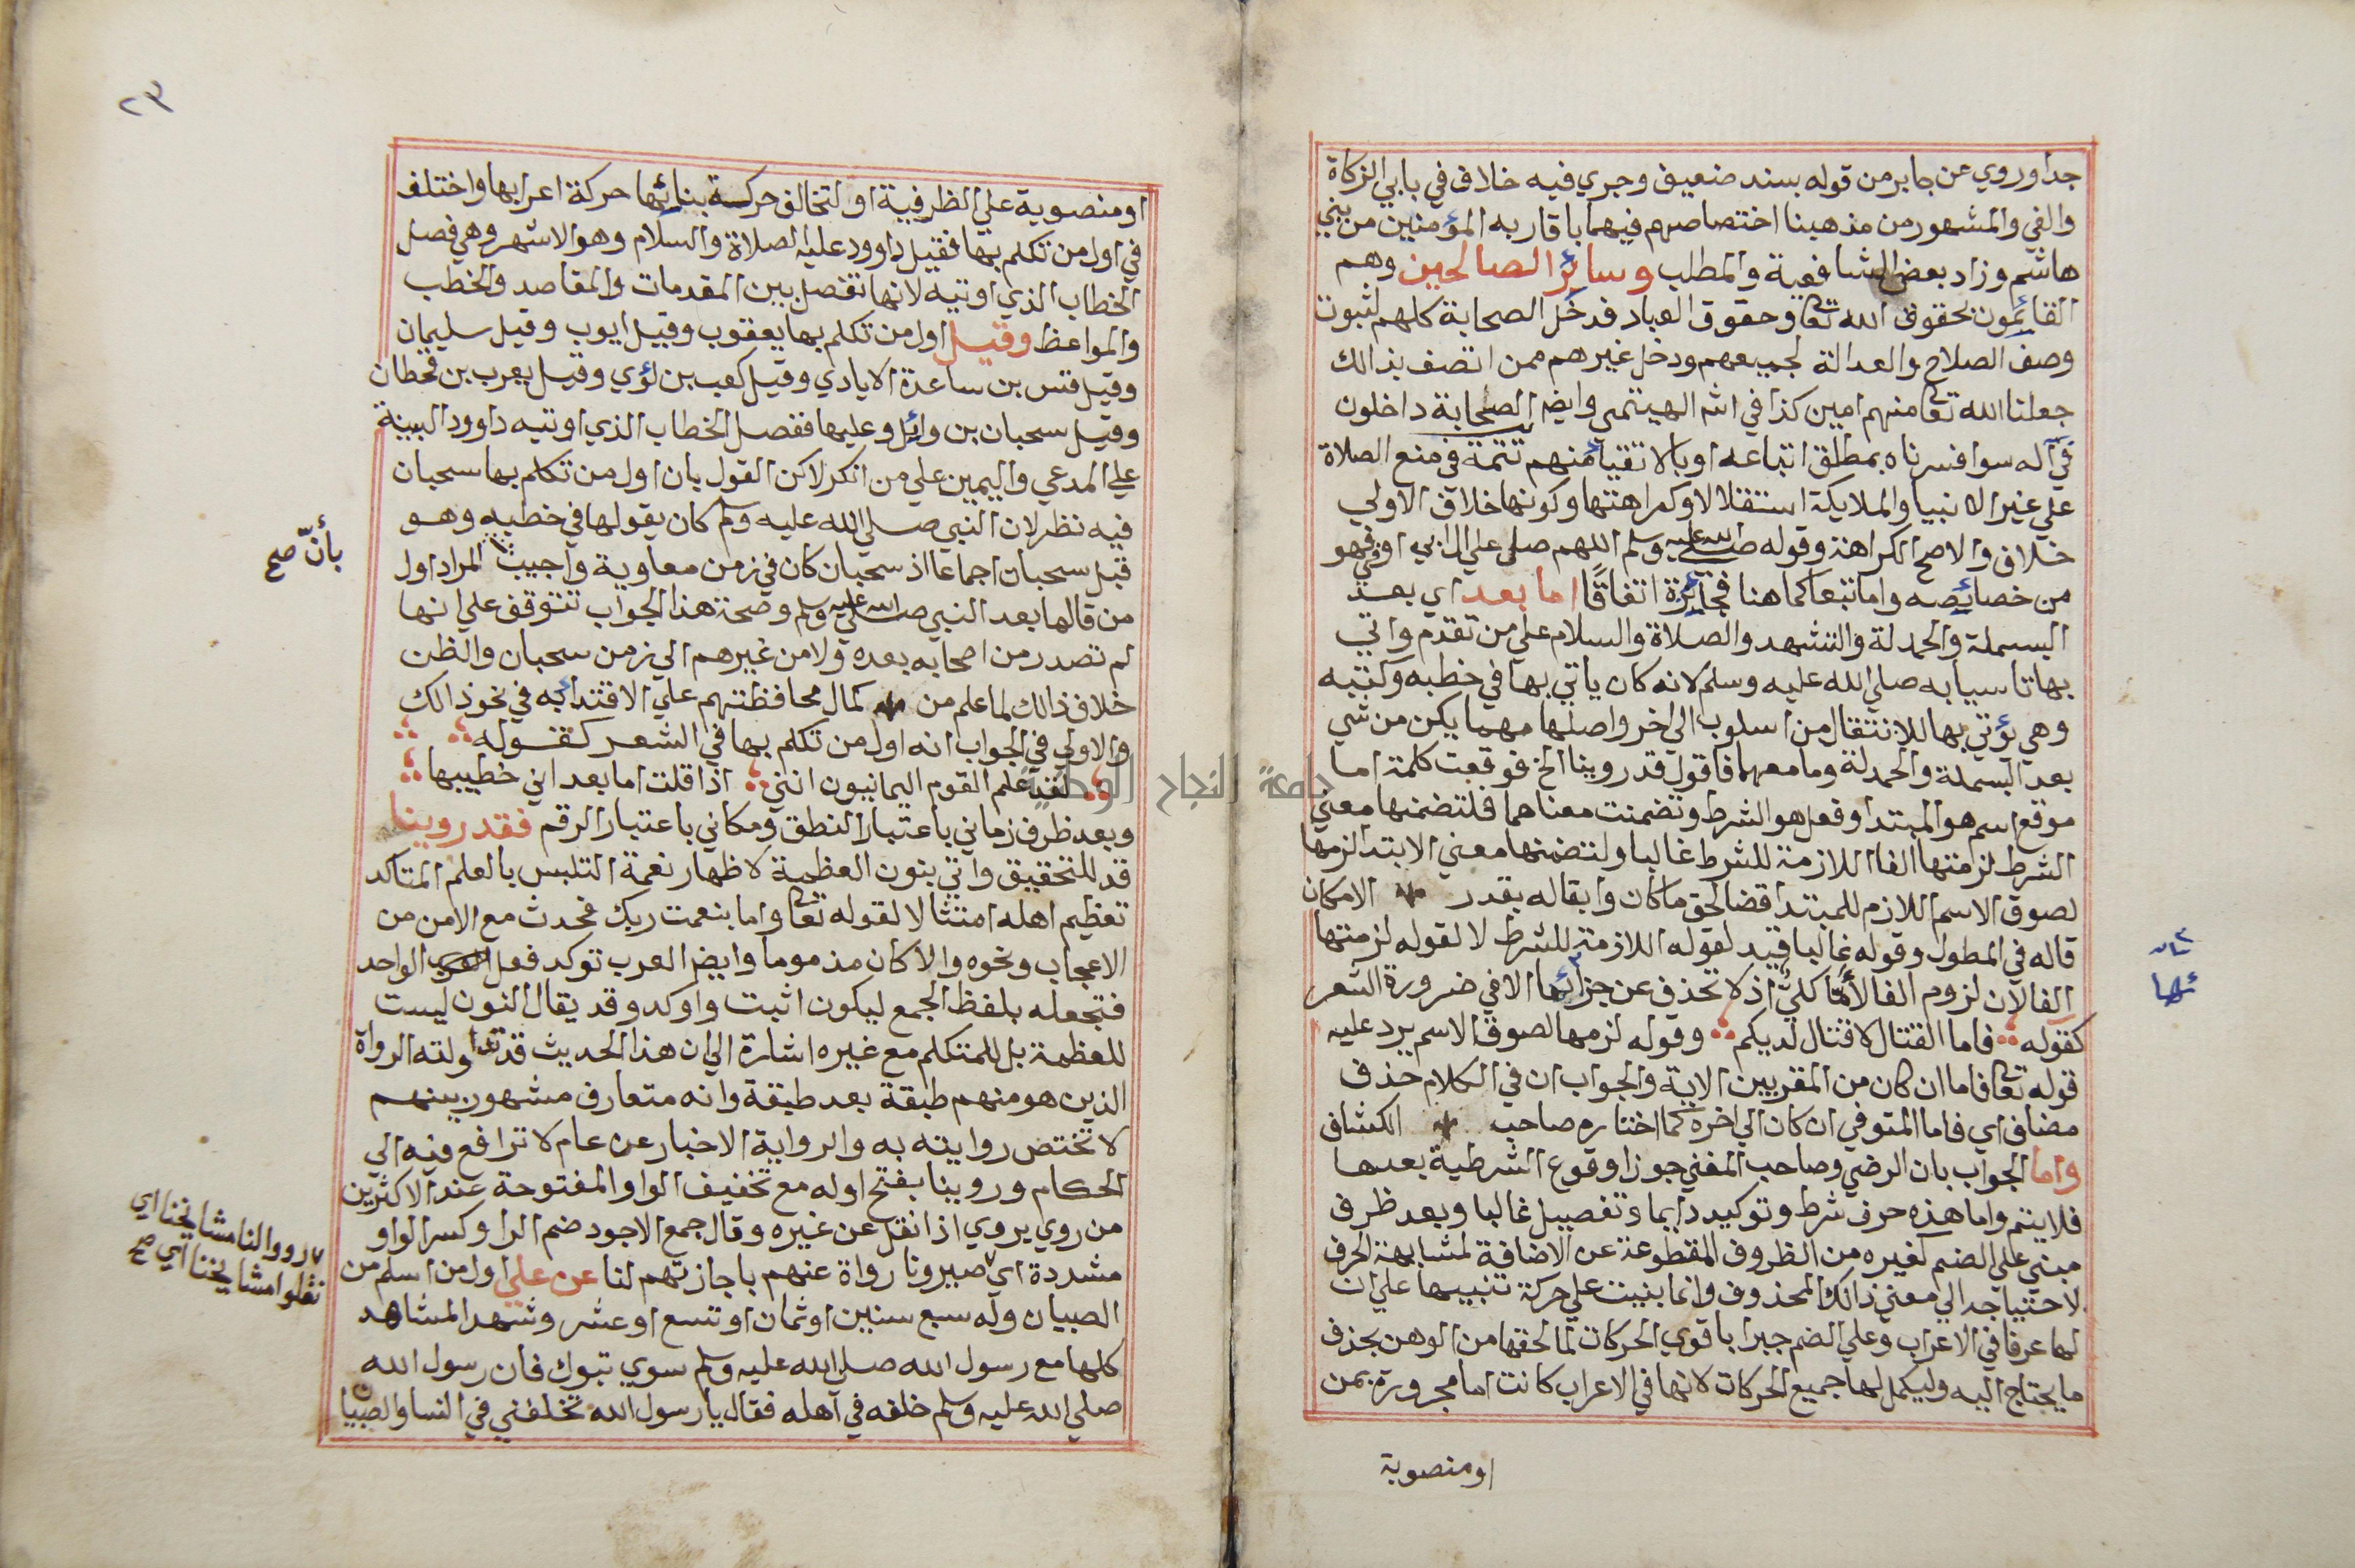 جدا وروي عن جابر من قوله بسند ضعيف وجري فيه خلاف في بابي الزكاة
والفي والمشهور من مذهبنا اختصاصهم فيهما باقاربه المؤمنين من بني
هاشم وزاد بعض الشافعية والمطلب وسائر الصالحين وهم
القائمون بحقوق الله تعا وحقوق العباد فدخل الصحابة كلهم لثبوت
وصف الصلاح والعدالة لجميعهم ودخل غيرهم ممن اتصف بذالك
جعلنا الله تعا منهم امين كذا في الهيتمي وايضا الصحابة داخلون
في آله سوا فسرناه بمطلق اتباعه او بالاتقيا منهم تتمة في منع الصلاة
علي غير الانبيا والملايكة استقلالا وكراهتها وكونها خلاف الاولي
خلاف والاصح الكراهة وقوله صلي الله عليه وسلم اللهم صلي علي ال ابي اوفي فهو
من خصائصه واما تبعا كما هنا فجائزة اتفاقًا اما بعد اي بعد
البسملة والحمدلة والتشهد والصلاة والسلام علي من تقدم واتي
بها تاسيا به صلي الله عليه وسلم لانه كان ياتي بها في خطبه وكتبه
وهي يؤتي بها للانتقال من اسلوب الي اخر واصلها مهما يكن من شي
بعد البسملة والحمدلة وما معهما فاقول قد روينا الخ فوقعت كلمة اما
موقع اسم هو المبتدا وفعل هو الشرط وتضمنت معناهما فلتضمنها معني
الشرط لزمتها الفا اللازمة للشرط غالبا ولتضمنها معني الابتدا لزمها
لصوق الاسم اللازم للمبتدا قضا لحق ما كان وابقا له بقدر الامكان
قاله في المطول وقوله غالبا قيد لقوله اللازمة للشرط لا لقوله لزمتها
الفا لان لزوم الفا لأمّا كليٌّ اذ لا تحذف عن جزائها الا في ضرورة الشعر
كقوله فاما القتال لا قتال لديكم وقوله لزمها لصوق الاسم يرد عليه
قوله تعا فاما ان كان من المقربين الاية والجواب ان في الكلام حذف
مضاف اي فاما المتوفي ان كان الي اخره كما اختاره صاحب الكشاف
واما الجواب بان الرضي وصاحب المغني جوزا وقوع الشرطية بعدها
فلا يتم واما هذه حرف شرط وتوكيد دايما وتفصيل غالبا وبعد ظرف
مبني علي الضم كغيره من الظروف المقطوعة عن الاضافة لمشابهة الحرف
لاحتياجها الي معني ذالك المحذوف وانما بنيت علي حركة تنبيها علي ان
لها عرفا في الاعراب وعلي الضم جبرا باقوي الحركات لما لحقها من الوهن بحذف
ما يحتاج اليه وليكمل لها جميع الحركات لانها في الاعراب كانت اما مجرورة بمن
او منصوبة
ئها
٢٣
او منصوبة علي الظرفية او لتخالف حركة بنائها حركة اعرابها واختلف
في اول من تكلم بها فقيل داوود عليه الصلاة والسلام وهو الاشهر وهي فصل
الخطاب الذي اوتيه لانها تفصل بين المقدمات والمقاصد والخطب
والمواعظ وقيل اول من تكلم بها يعقوب وقيل ايوب وقيل سليمان
وقيل قس بن ساعدة الايادي وقيل كعب بن لؤي وقيل يعرب بن قحطان
وقيل سحبان بن وائل وعليها ففصل الخطاب الذي اوتيه داوود البينة
علي المدعي واليمين علي من انكر لاكن القول بان اول من تكلم بها سحبان
فيه نظر لان النبي صلي الله عليه وسلم كان يقولها في خطبه وهو
قبل سحبان اجماعا اذ سحبان كان في زمن معاوية واجيب المراد اول
من قالها بعد النبي صلي الله عليه وسلم وصحة هذا الجواب تتوقف علي انها
لم تصدر من اصحابه بعده ولا من غيرهم الي زمن سحبان والظن
خلاف ذالك لما علم من كمال محافظتهم علي الاقتدا به في نحو ذالك
والاولي في الجواب انه اول من تكلم بها في الشعر كقوله
لقد علم القوم اليمانيون انني اذا قلت اما بعد اني خطيبها
وبعد ظرف زماني باعتبار النطق ومكاني باعتبار الرقم فقد روينا
قد للتحقيق واتي بنون العظمة لاظهار نعمة التلبس بالعلم المتاكد
تعظيم اهله امتثالا لقوله تعا واما بنعمت ربك فحدث مع الامن من
الاعجاب ونحوه والا كان مذموما وايضا العرب توكد فعل الواحد
فتجعله بلفظ الجمع ليكون اثبت واوكد وقد يقال النون ليست
للعظمة بل للمتكلم مع غيره اشارة الي ان هذا الحديث قد تداولته الرواة
الذين هو منهم طبقة بعد طبقة وانه متعارف مشهور بينهم
لا تختص روايته به والرواية الاخبار عن عام لا ترافع فيه الي
الحكام وروينا بفتح اوله مع تخفيف الواو المفتوحة عند الاكثرين
من روي يروي اذا نقل عن غيره وقال جمع الاجود ضم الرا وكسر الواو
مشددة اي صيرونا رواة عنهم باجازتهم لنا عن علي اول من اسلم من
الصبيان وله سبع سنين او ثمان او تسع او عشر وشهد المشاهد
كلها مع رسول الله صلي الله عليه وسلم سوي تبوك فان رسول الله
صلي الله عليه وسلم خلفه في اهله فقال يا رسول الله تخلفني في النسا والصبيان
بأنّ صح
رووا لنا مشايخنا اي
نقلوا مشايخنا اي صح
جامعة النجاح الوطنية